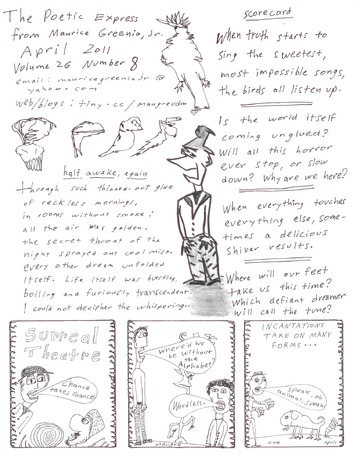 The Poetic Express
from Maurice Greenia, Jr.
April 2011
Volume 26 Number 8
email: mauricegreeniajr@
yahoo.com
web/blogs: tiny.cc/maugrevdm
half awake, again
through such thinned-out glue
of reckless mornings,
in rooms without smoke:
all the air was golden.
the secret throat of the
night sprayed out cool mist.
every other dream unfolded
itself. Life itself was bursting,
boiling and furiously transcendent.
I could not decipher the whispering...
scorecard
When truth starts to
sing the sweetest,
most impossible songs,
the birds all listen up.
Is the world itself
coming unglued?
Will all this horror
ever stop, or slow
down? Why are we here?
When everything touches
everything else, some-
times a delicious
shiver results.
Where will our feet
take us this time?
Which defiant dreamer
will call the tune?
Surreal
Theatre
Chance
takes chance!
Where'd we
be without
the
Alphabet?
Wordless.
INCANTATIONS
TAKE ON MANY
FORMS...
Speak, oh
animal, speak!